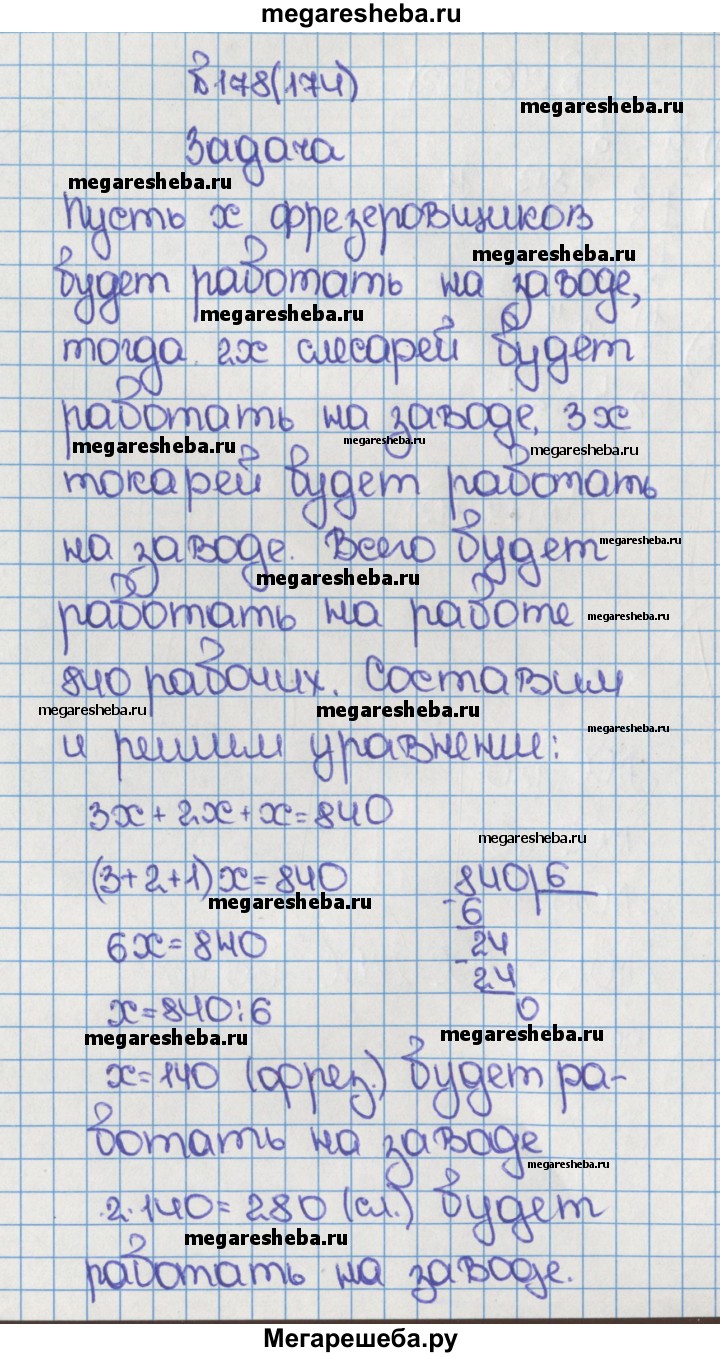 megaresheba.ru
№178(174)
megaresheba.ru
Задача
megaresheba.ru
Пусть x фрезеровщиков
megaresheba.ru
будет работать на заводе,
megaresheba.ru
тогда 2x слесарей будет
работать на заводе, 3x
megaresheba.ru
megaresheba.ru
megaresheba.ru
токарей будет работать
на заводе. Всего будет
megaresheba.ru
megaresheba.ru
работать на работе
megaresheba.ru
840 рабочих. Составим
megaresheba.ru
megaresheba.ru
и решим уравнение:
megaresheba.ru
3x+2x+x=840
megaresheba.ru
(3+2+1)x=840
840 6
megaresheba.ru
-6
6x=840
24
-24
x=840:6
0
megaresheba.ru
megaresheba.ru
x=140 (фрез.) будет ра-
ботать на заводе
megaresheba.ru
2·140=280 (сл.) будет
megaresheba.ru
работать на заводе.
Мегарешеба.ру